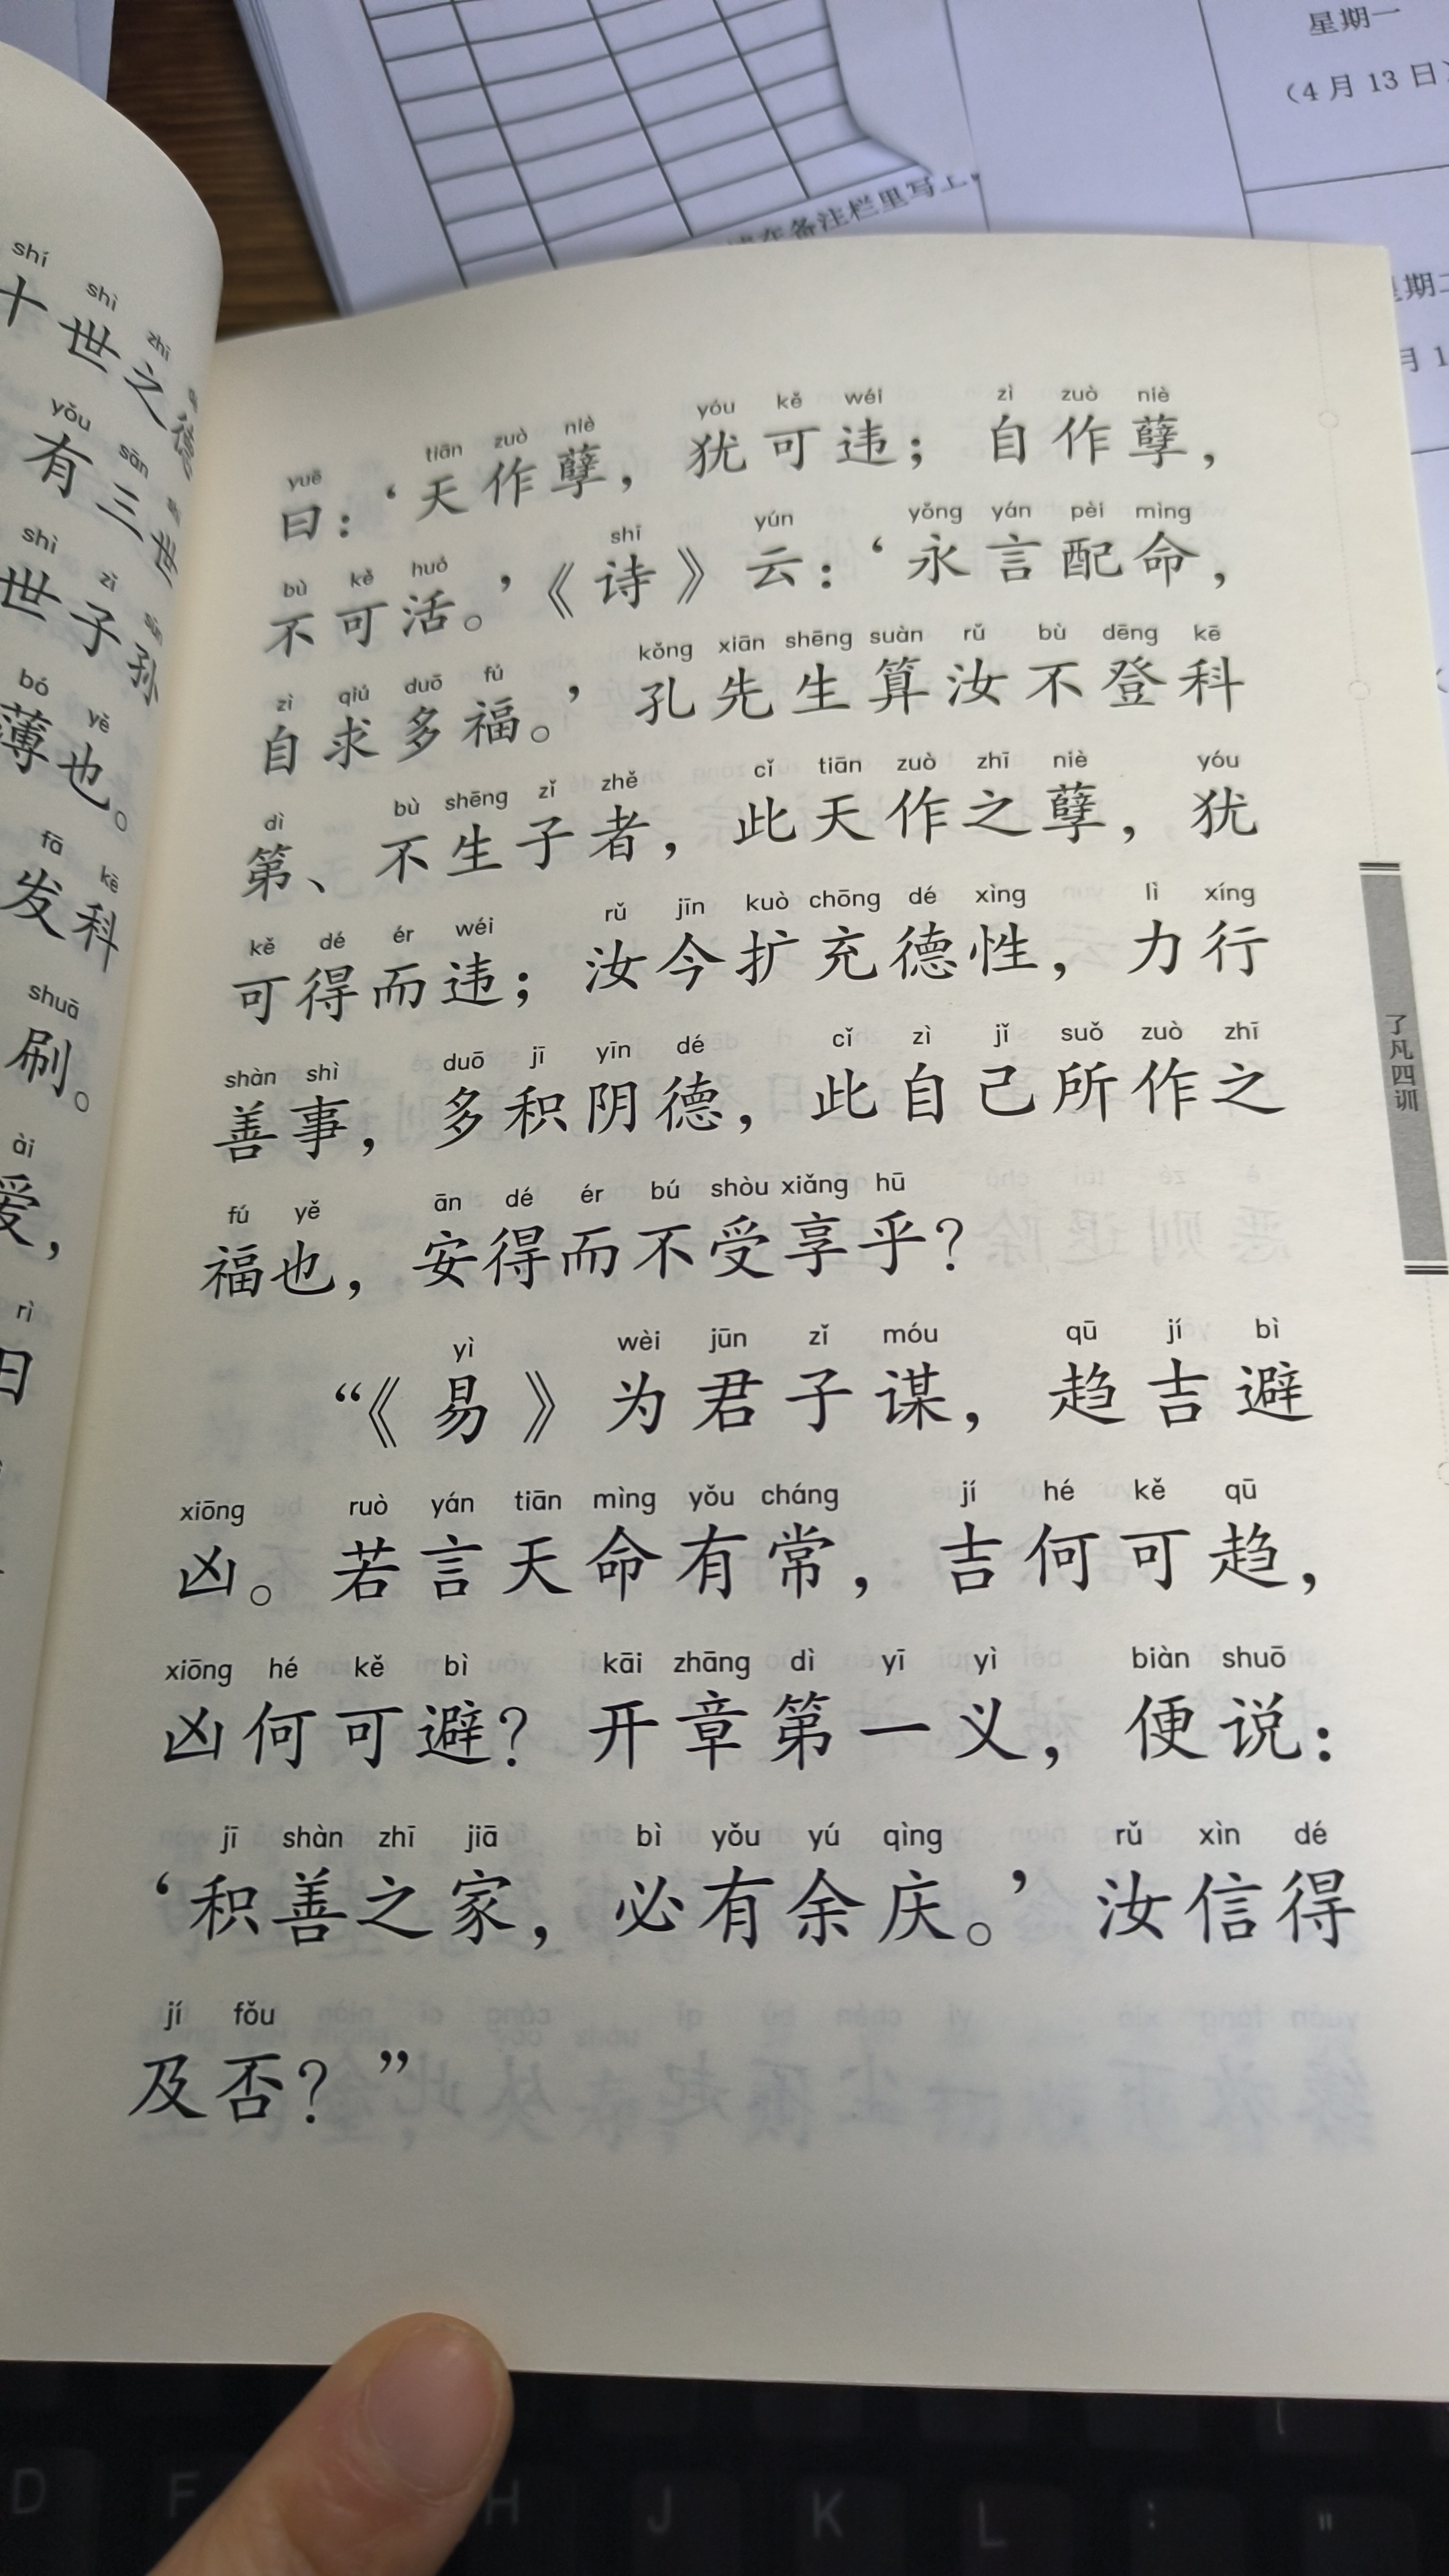 星期一
(4 月 13 日)
在备注栏里写上。
shí shì zhī
十世之德
yǒu sān
有三世
shì zǐ
世子孙
bó yě
薄也。
fā kē
发科
shuā
刷。
ài
爱，
rì
日
yuē tiān zuò niè yóu kě wéi zì zuò niè
曰：‘天作孽，犹可违；自作孽，
bù kě huó shī yún yǒng yán pèi mìng
不可活。’《诗》云：‘永言配命，
zì qiú duō fú kǒng xiān shēng suàn rǔ bù dēng kē
自求多福。’孔先生算汝不登科
dì bù shēng zǐ zhě cǐ tiān zuò zhī niè yóu
第、不生子者，此天作之孽，犹
kě dé ér wéi rǔ jīn kuò chōng dé xìng lì xíng
可得而违；汝今扩充德性，力行
shàn shì duō jī yīn dé cǐ zì jǐ suǒ zuò zhī
善事，多积阴德，此自己所作之
fú yě ān dé ér bú shòu xiǎng hū
福也，安得而不受享乎？
yì wèi jūn zǐ móu qū jí bì
“《易》为君子谋，趋吉避
xiōng ruò yán tiān mìng yǒu cháng jí hé kě qū
凶。若言天命有常，吉何可趋，
xiōng hé kě bì kāi zhāng dì yī yì biàn shuō
凶何可避？开章第一义，便说：
jī shàn zhī jiā bì yǒu yú qìng rǔ xìn dé
‘积善之家，必有余庆。’汝信得
jí fǒu
及否？”
了凡四训
D F H J K L : "